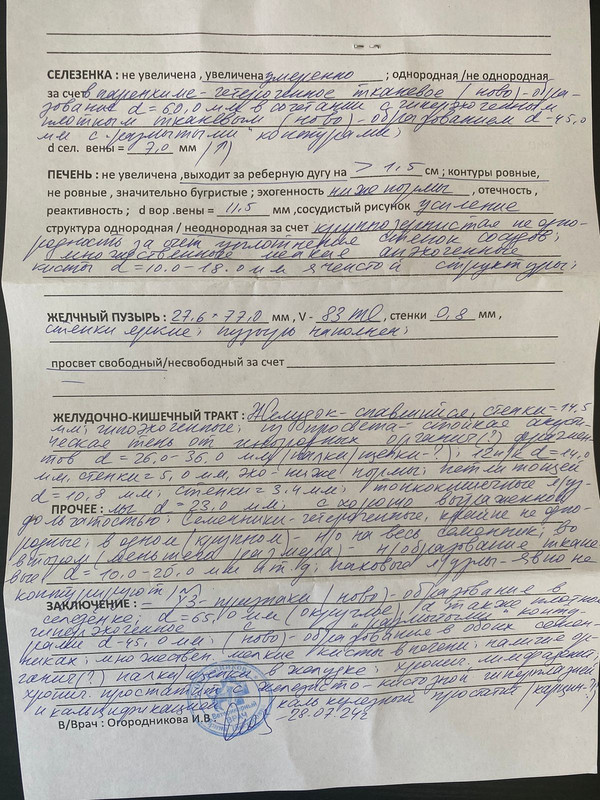 СЕЛЕЗЕНКА : не увеличена , увеличена умеренно ; однородная /не однородная
за счет в паренхиме- гетерогенное тканевое (ново)- обра-
зование d = 60,0 мм в сочетании с гиперэхогенным
плотным тканевым (ново)- образованием d- 45,0
мм с "размытыми" контурами;
d сел. вены = 7,0 мм /(↑)
ПЕЧЕНЬ : не увеличена ,выходит за реберную дугу на > 1,5 см ; контуры ровные,
не ровные , значительно бугристые ; эхогенность ниже нормы , отечность ,
реактивность ; d вор .вены = 11,5 мм ,сосудистый рисунок усиление
структура однородная / неоднородная за счет крупнозернистая не одно-
родность за счет уплотнения стенок сосудов;
множественные мелкие анэхогенные
кисты d = 10,0 - 18,0 мм ячеистой структуры;
ЖЕЛЧНЫЙ ПУЗЫРЬ : 27,6 * 77,0 мм , V - 83 ml , стенки 0,8 мм ,
стенки яркие; пузырь наполнен;
просвет свободный/несвободный за счет
ЖЕЛУДОЧНО-КИШЕЧНЫЙ ТРАКТ : Желудок- спавшийся, стенки = 14,5
мм; гипоэхогенные; из просвета- стойкая акусти-
ческая тень от инородных органич(?) фрагмен-
тов d = 26,0 - 36,0 мм /палка/щепки-?); 12п/к d = 14,0
мм, стенки = 5,0 мм, эхо- ниже нормы; петли тощей
d = 10,8 мм; стенки = 3,4 мм; тонкокишечные л/у-
ПРОЧЕЕ : лы d = 23,0 мм; с хорошо выраженной
дольчатостью; Семенники- гетерогенные, крайне не одно-
родные; в одном (крупном)- н/о на весь семенник; во
втором (меньшего размера)- н/образование ткане
вые d = 10,0 - 20,0 мм и т.д; паховые л/узлы- явно не
контурируют;
ЗАКЛЮЧЕНИЕ : - УЗ- признаки (ново)- образование в
селезенке; d = 65,0 мм (округлые), а также плотное
гиперэхогенное с размытыми конту-
рами d- 45,0 мм; (ново)- образование в обоих семен-
никах; множествен. мелкие кисты в печени; наличие ор-
ганич(?) палка/щепки в желудке; хронич. лимфаденит,
хронич. простатит с железисто- кистозной гиперплазией
и кальцификацией калькулезный простатит (карцин-?)
В/Врач : Огородникова И.В. 28.07.24г